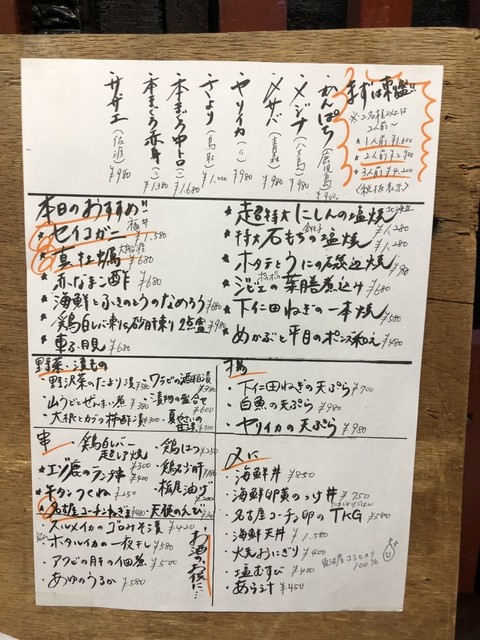 まずは東鑑!!
※2名様以上は
2人前〜
・1人前 ¥1,600
・2人前 ¥2,900
・3人前 ¥4,200
(税抜表示)
かんぱち(鹿児島) ¥980
メジナ(八丈島) ¥980
〆サバ(青森) ¥980
ヤリイカ(〃) ¥980
さより(鳥取) ¥1,000
本まぐろ中トロ(〃) ¥1,680
本まぐろ赤身(〃) ¥1,380
サザエ(佐渡) ¥980
本日のおすすめ!!
★セイコガニ 福井 ¥1,580
真牡蠣 ¥680
★赤なまこ酢 ¥680
★海鮮とふきのとうのなめろう ¥680
★鶏白レバー刺し砂肝刺し2点盛 ¥980
★車ふ貝 ¥680
★超特大にしんの塩焼 北海道 ¥1,280
★特大石もちの塩焼 銚子 ¥1,280
★ホタテとうにの磯辺焼 ¥980
★ジビエの葉膳煮込み ¥680
★下仁田ねぎの一本焼 ¥580
★めかぶと平目のポン酢和え ¥480
野菜・漬もの
・野沢菜のたまり漬 ¥380
・山うどとぜんまい煮 ¥380
・大根とカブの柿酢漬 ¥300
・ワラビの酒粕漬
・漬物の盛合せ ¥600
揚
・下仁田ねぎの天ぷら ¥700
・白魚の天ぷら ¥980
・ヤリイカの天ぷら ¥980
串
・鶏白レバー
超レア焼 ¥300
★エゾ鹿のランプ串 ¥400
★牛タンつくね ¥250
・名古屋コーチンねぎま ¥480
・鶏はつ ¥250
・鶏砂肝 ¥180
・栃尾油げ
・天使のえび
お酒のお供に…
・スルメイカのゴロみそ漬 ¥420
・ホタルイカの一夜干し ¥580
・アワビの肝の佃煮 ¥500
・あゆのうるか ¥580
〆に
・海鮮丼 ¥850
・海鮮卵黄のっけ丼 ¥750
・名古屋コーチン卵のTKG ¥580
・海鮮天丼 ¥1,580
・焼おにぎり ¥400
・塩むすび ¥400
・あら汁 ¥450
魚沼産コシヒカリ
100%